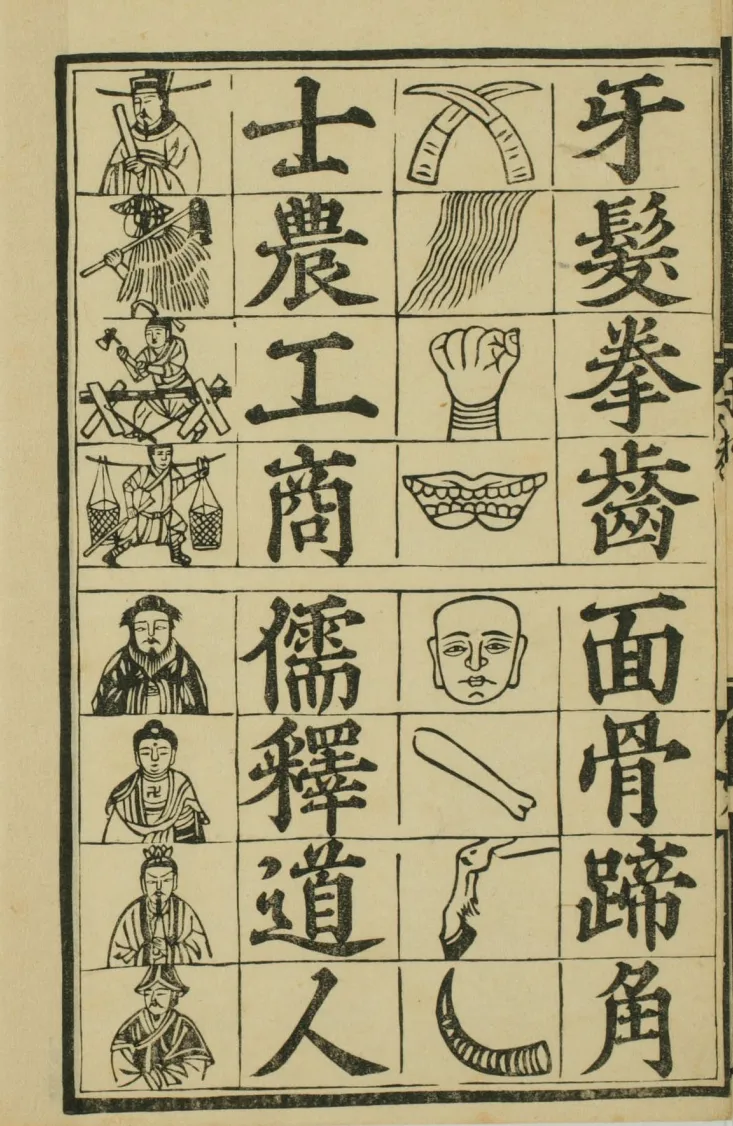 牙髮拳齒
面骨蹄角
士農工商
儒釋道人